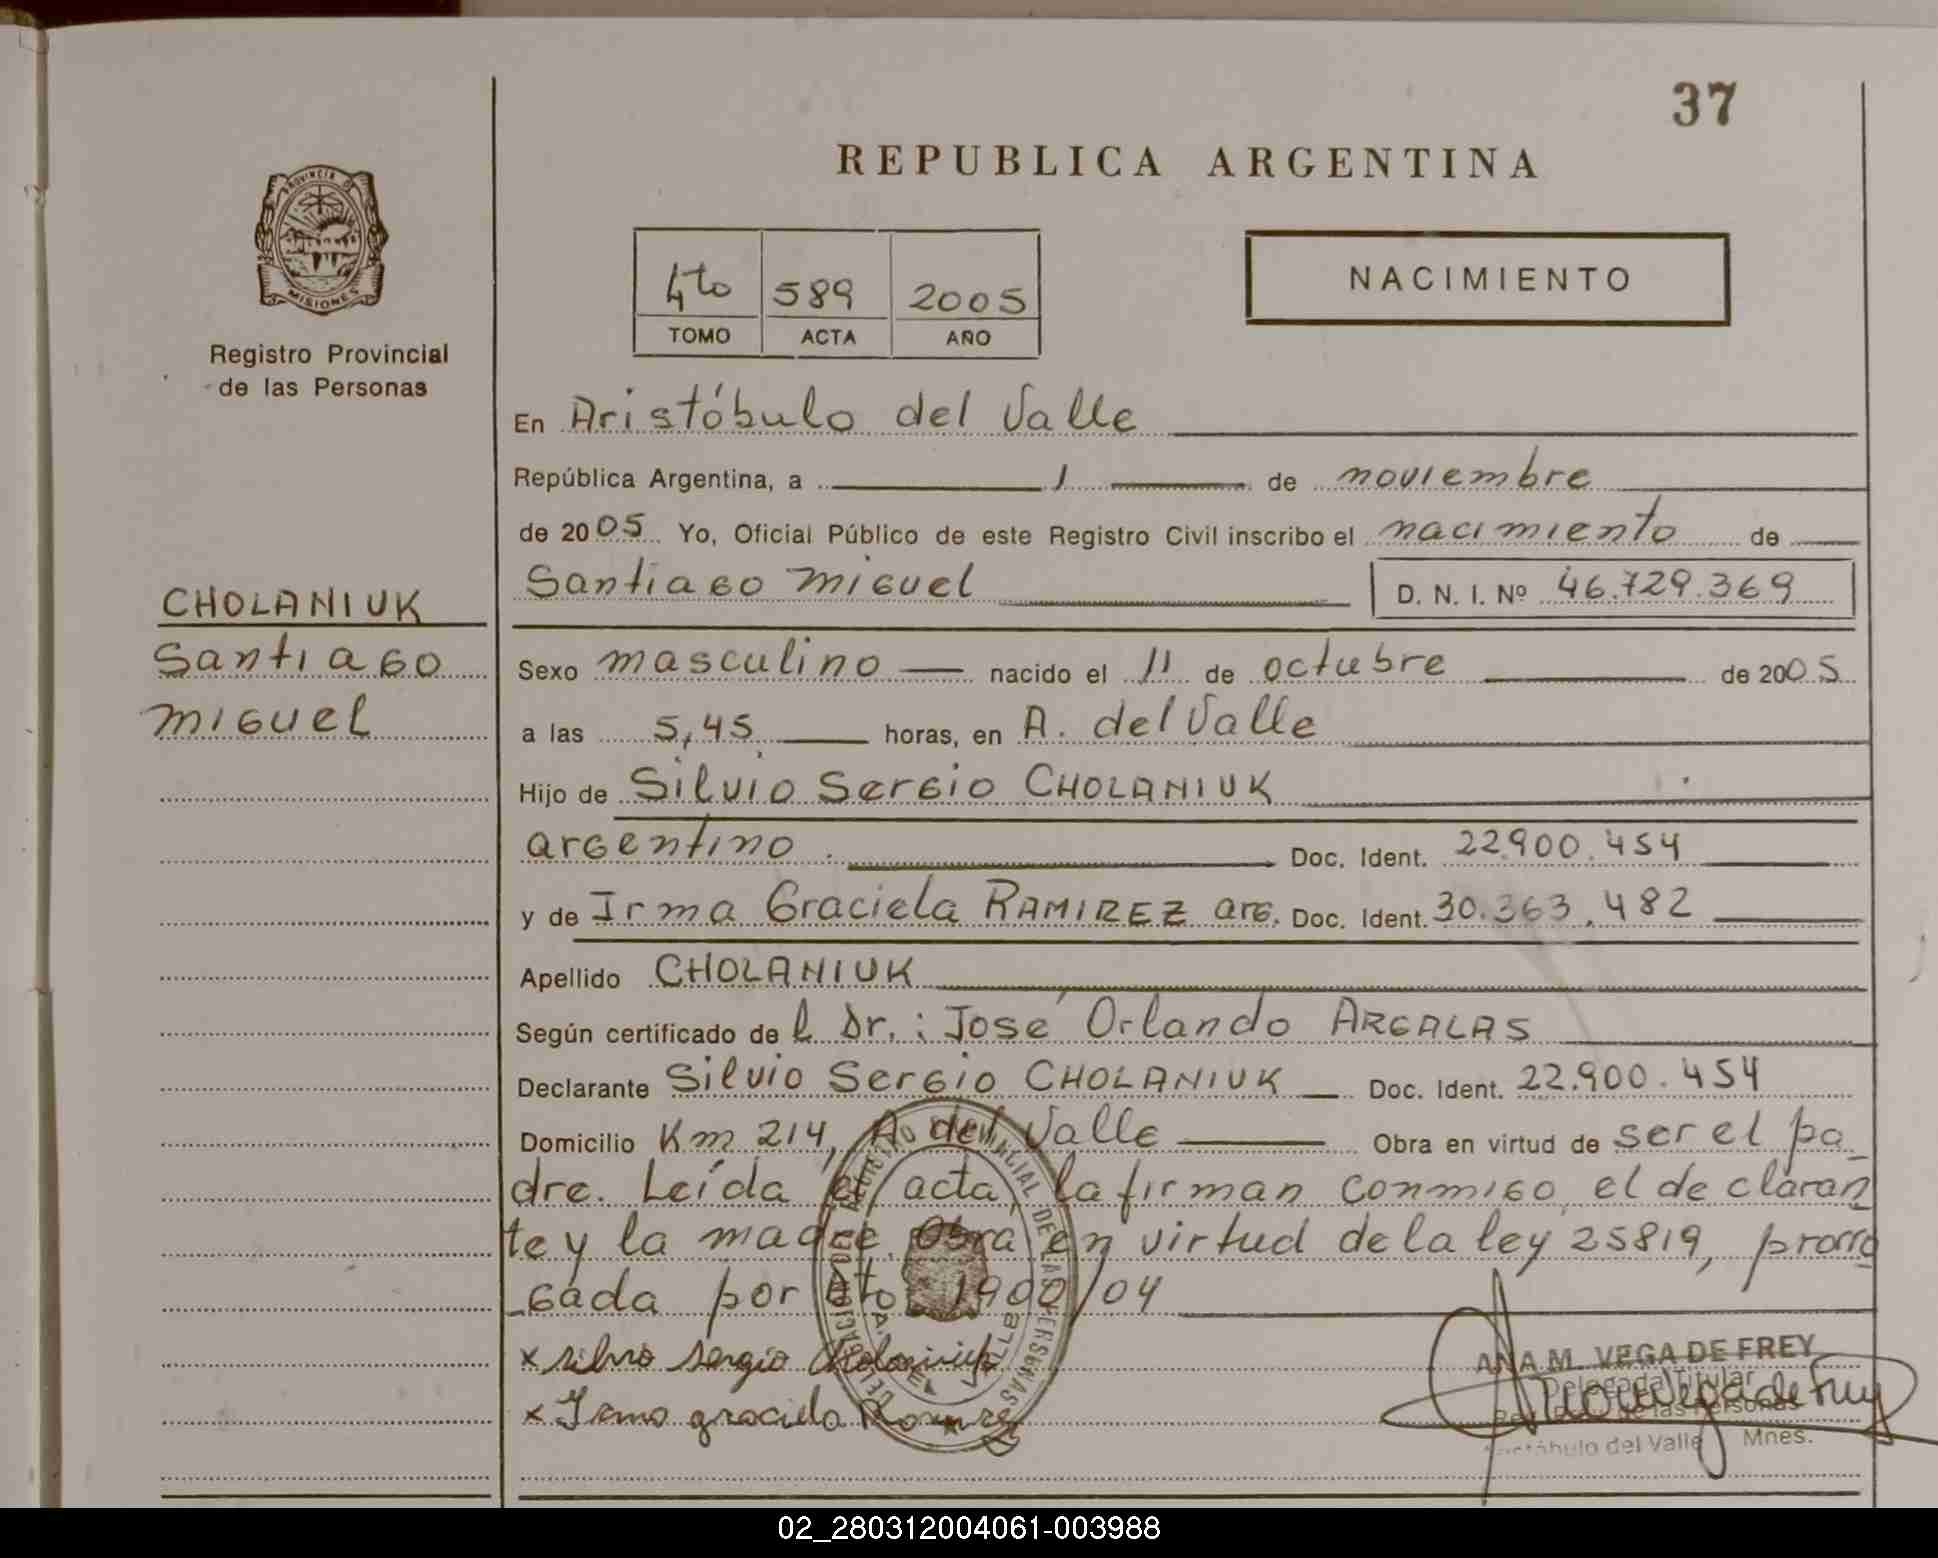 37
REPUBLICA ARGENTINA
PROVINCIA DE
MISIONES
Registro Provincial
de las Personas
4to 589 2005
TOMO ACTA AÑO
NACIMIENTO
En Aristóbulo del Valle
República Argentina, a 1 de noviembre
de 2005 Yo, Oficial Público de este Registro Civil inscribo el nacimiento de
Santiago Miguel D. N. I. Nº 46.729.369
CHOLANIUK
Santiago
Miguel
Sexo masculino nacido el 11 de octubre de 2005
a las 5,45 horas, en A. del Valle
Hijo de Silvio Sergio CHOLANIUK
argentino. Doc. Ident. 22.900.454
y de Irma Graciela RAMIREZ arg. Doc. Ident. 30.363.482
Apellido CHOLANIUK
Según certificado de l Dr.: José Orlando ARGALAS
Declarante Silvio Sergio CHOLANIUK Doc. Ident. 22.900.454
Domicilio Km 214, A del Valle Obra en virtud de ser el pa
dre. Leída el acta, la firman conmigo el declaran
te y la madre. Obra en virtud de la ley 25819, prorro
gada por dto 1900/04
x silvio sergio Cholaniuk
x Irma graciela Ramirez
ANA M. VEGA DE FREY
Delegada Titular
Reg. Prov. de las Personas
Aristóbulo del Valle Mnes.
02_280312004061-003988